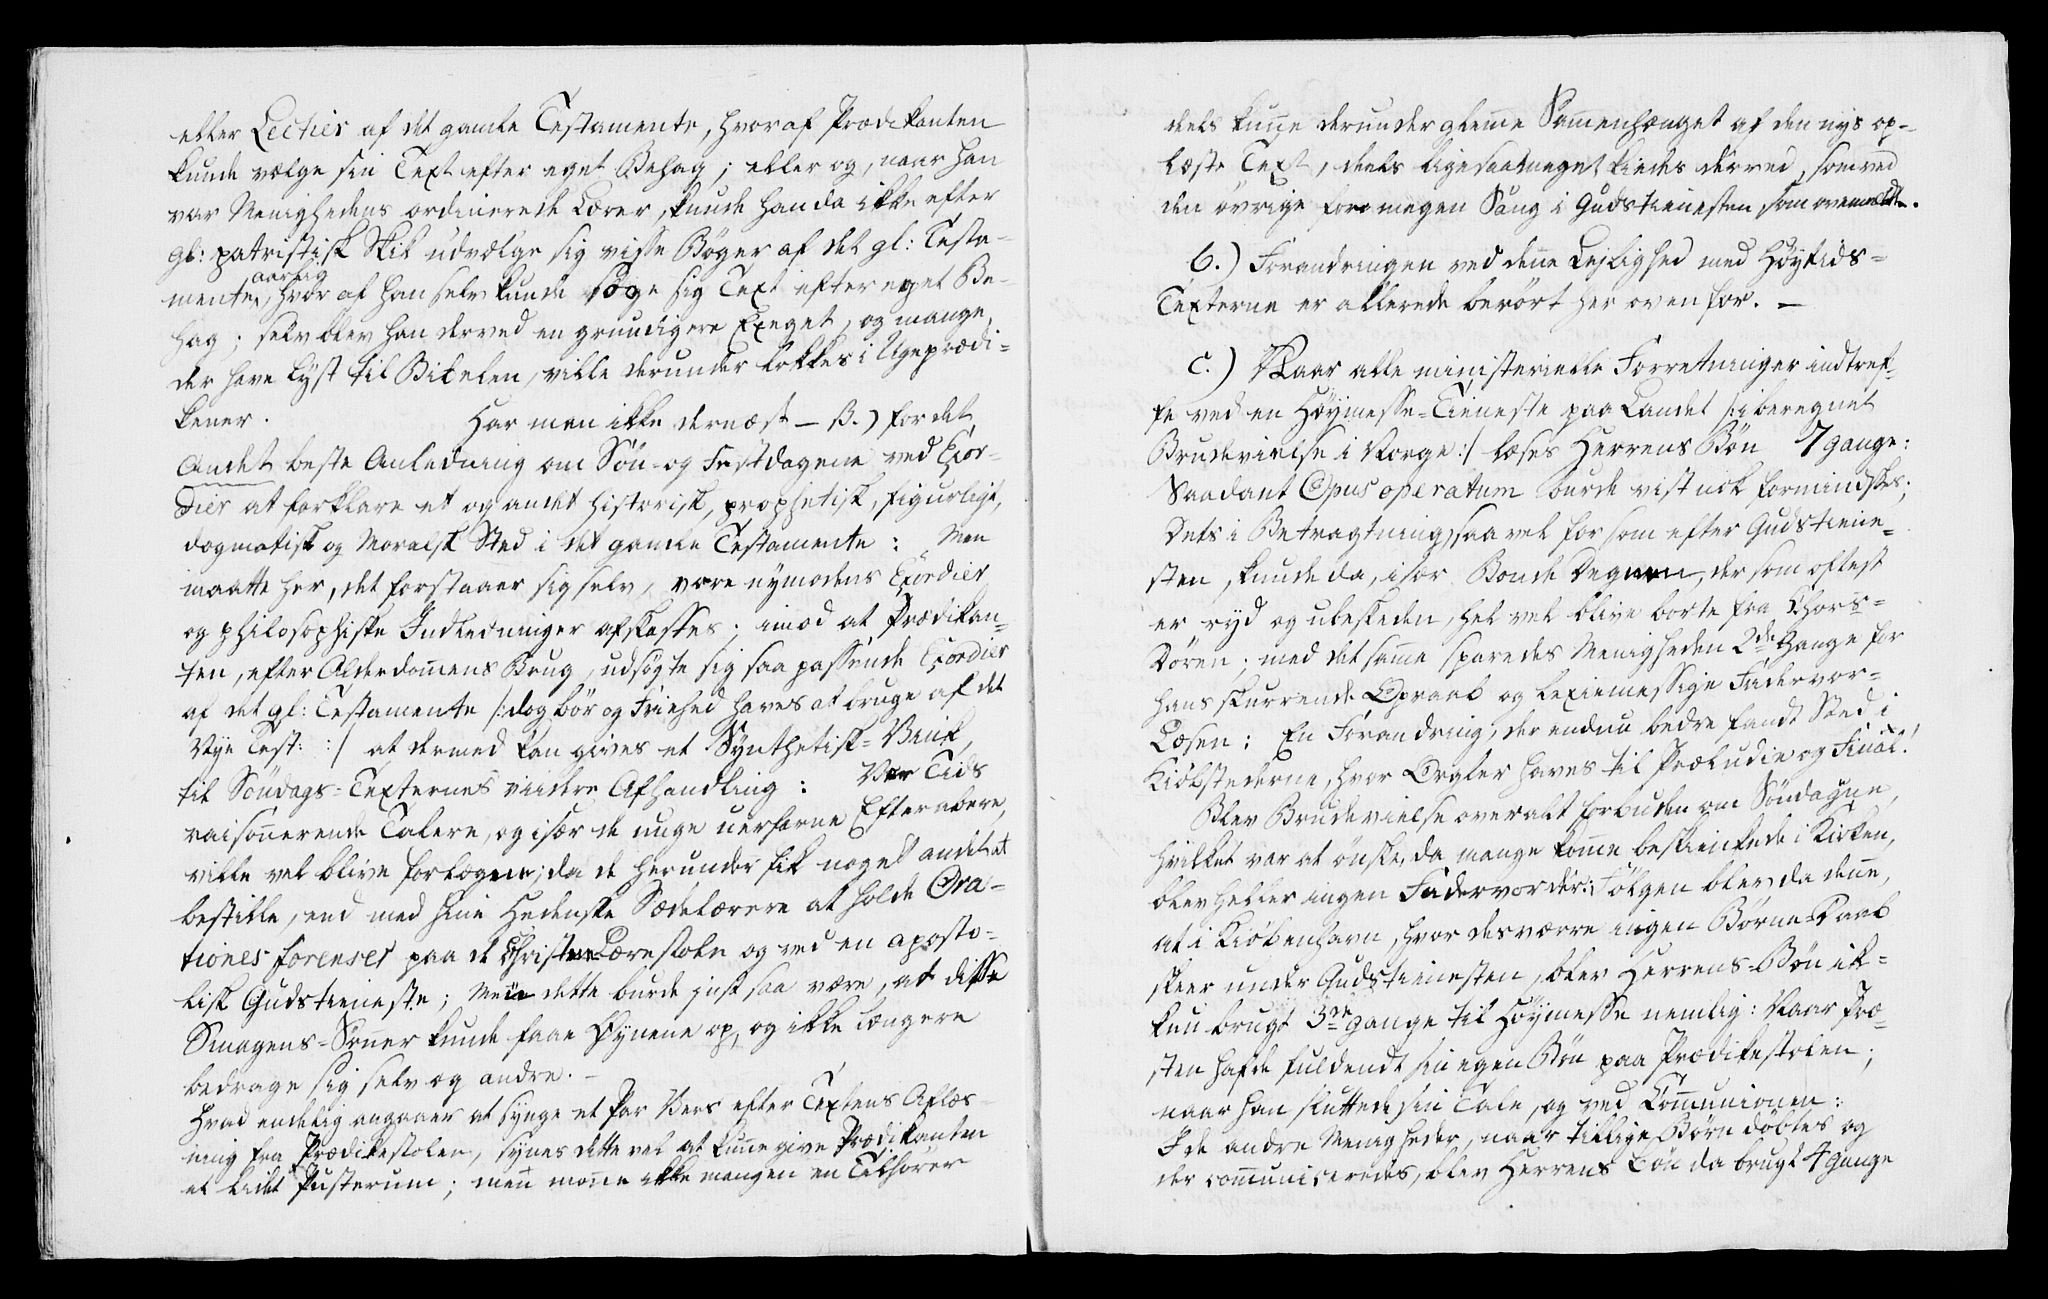 eller Lectier af det gamle Testamente, hvoraf Prædikanten
kunde vælge sin Text efter eget Behag; eller og, naar han
var Menighedens ordinerede Lærer, kunde han da ikke efter
gl: patristisk Skik udvælge sig visse Bøger af det gl: Testa-
aarlig
mente, hvor af han selv kunde søge sig Text efter eget Be-
hag; selv blev han derved en grundigere Exeget, og mange,
der have Lyst til Bibelen, ville derunder lokkes i Ugeprædi-
kener. Har man ikke dernæst – B.) for det
Andet beste Anledning om Søn- og Festdagene ved Exor-
dier at forklare et og andet historisk, prophetisk, figurligt,
dogmatisk og Moralsk Sted i det gamle Testamente: Men
maatte her, det forstaaer sig selv, være nymodens Exordier
og philosophiske Indledninger afskaffes; imod at Prædikan-
ten, efter Alderdom̄ens Brug, udsøgte sig saa passende Exordier
af det gl: Testamente /: dog bør og Friehed haves at bruge af det
Nye Test: :/ at dermed kan gives et Synthetisk-Vink,
til Søndags-Texternes viidere Afhandling: Vor Tids
raison̄erende Talere, og især de unge uerfarne Efterabere,
ville vel blive forlegne; da de herunder fik noget andet at
bestille, end med hine Hedenske Sædelærere at holde Ora-
tiones forenses paa de Christne Lærestole og ved en aposto-
lisk Gudstieneste; Men dette burde just saa være, at disse
Smagens-Søn̄er kunde faae Øynene op, og ikke længere
bedrage sig selv og andre. –
Hvad endelig angaaer at synge et Par Vers efter Textens Aflæs-
ning fra Prædikestolen, synes dette vel at kun̄e give Prædikanten
et lidet Pusterum; men mon̄e ikke mangen en Tilhører
deels kun̄e derunder glem̄e Sam̄enhænget af den nys op-
læste Text, deels ligesaameget kiedes derved, som ved
den øvrige for megen Sang i Gudstienesten som ovenmeldt.
b.) Forandringen ved den̄e Lejlighed med Høytids-
Texterne er allerede berørt her oven for. –
c.) Naar alle ministerielle Forretninger indtref-
fe ved en Høymesse-Tieneste paa Landet /: iberegnet
Brudevielse i Norge :/ læses Herrens Bøn 7 gange:
Saadant Opus operatum burde vist nok formindskes;
Dets i Betragtning, saa vel for som efter Gudstiene-
sten, kunde da, især Bonde Degnen, der som oftest
er ryd og ubeskeden, hel vel blive borte fra Chors-
Døren; med det sam̄e sparedes Menigheden 2de Gange for
hans skurrende Opraab og lexiemessige Fadervor-
Læsen: En Forandring, der endnu bedre fandt Sted i
Kiøbstederne, hvor Orgler haves til Præludie og Final!
Blev Brudevielse overalt forbuden om Søndagene,
hvilket var at ønske, da mange kom̄e beskienkede i Kirken,
blev heller ingen Fadervor der: Følgen blev da den̄e,
at i Kiøbenhavn, hvor desværre ingen Børne Daab
skeer under Gudstienesten, blev Herrens-Bøn ik-
kun brugt 3de gange til Høymesse nemlig: Naar Præ-
sten hafde fuldendt sin egen Bøn paa Prædikestolen;
naar han sluttede sin Tale, og ved Com̄unionen:
I de andre Menigheder, naar tillige Børn døbtes og
der com̄uniceredes, blev Herrens Bøn da brugt 4 gange